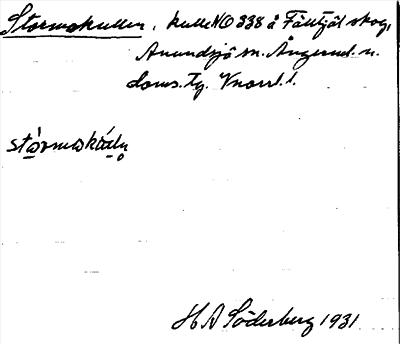 Stormokullen, kulle NO 338 å Fälltjäl skog,
Anundsjö sn. Ångerml. n.
doms. tg. Vnorrl. l.
stòrmokúln
H A Söderberg 1931